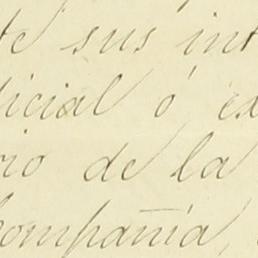 te sus int
dicial ó ex
rio de la
compañia,